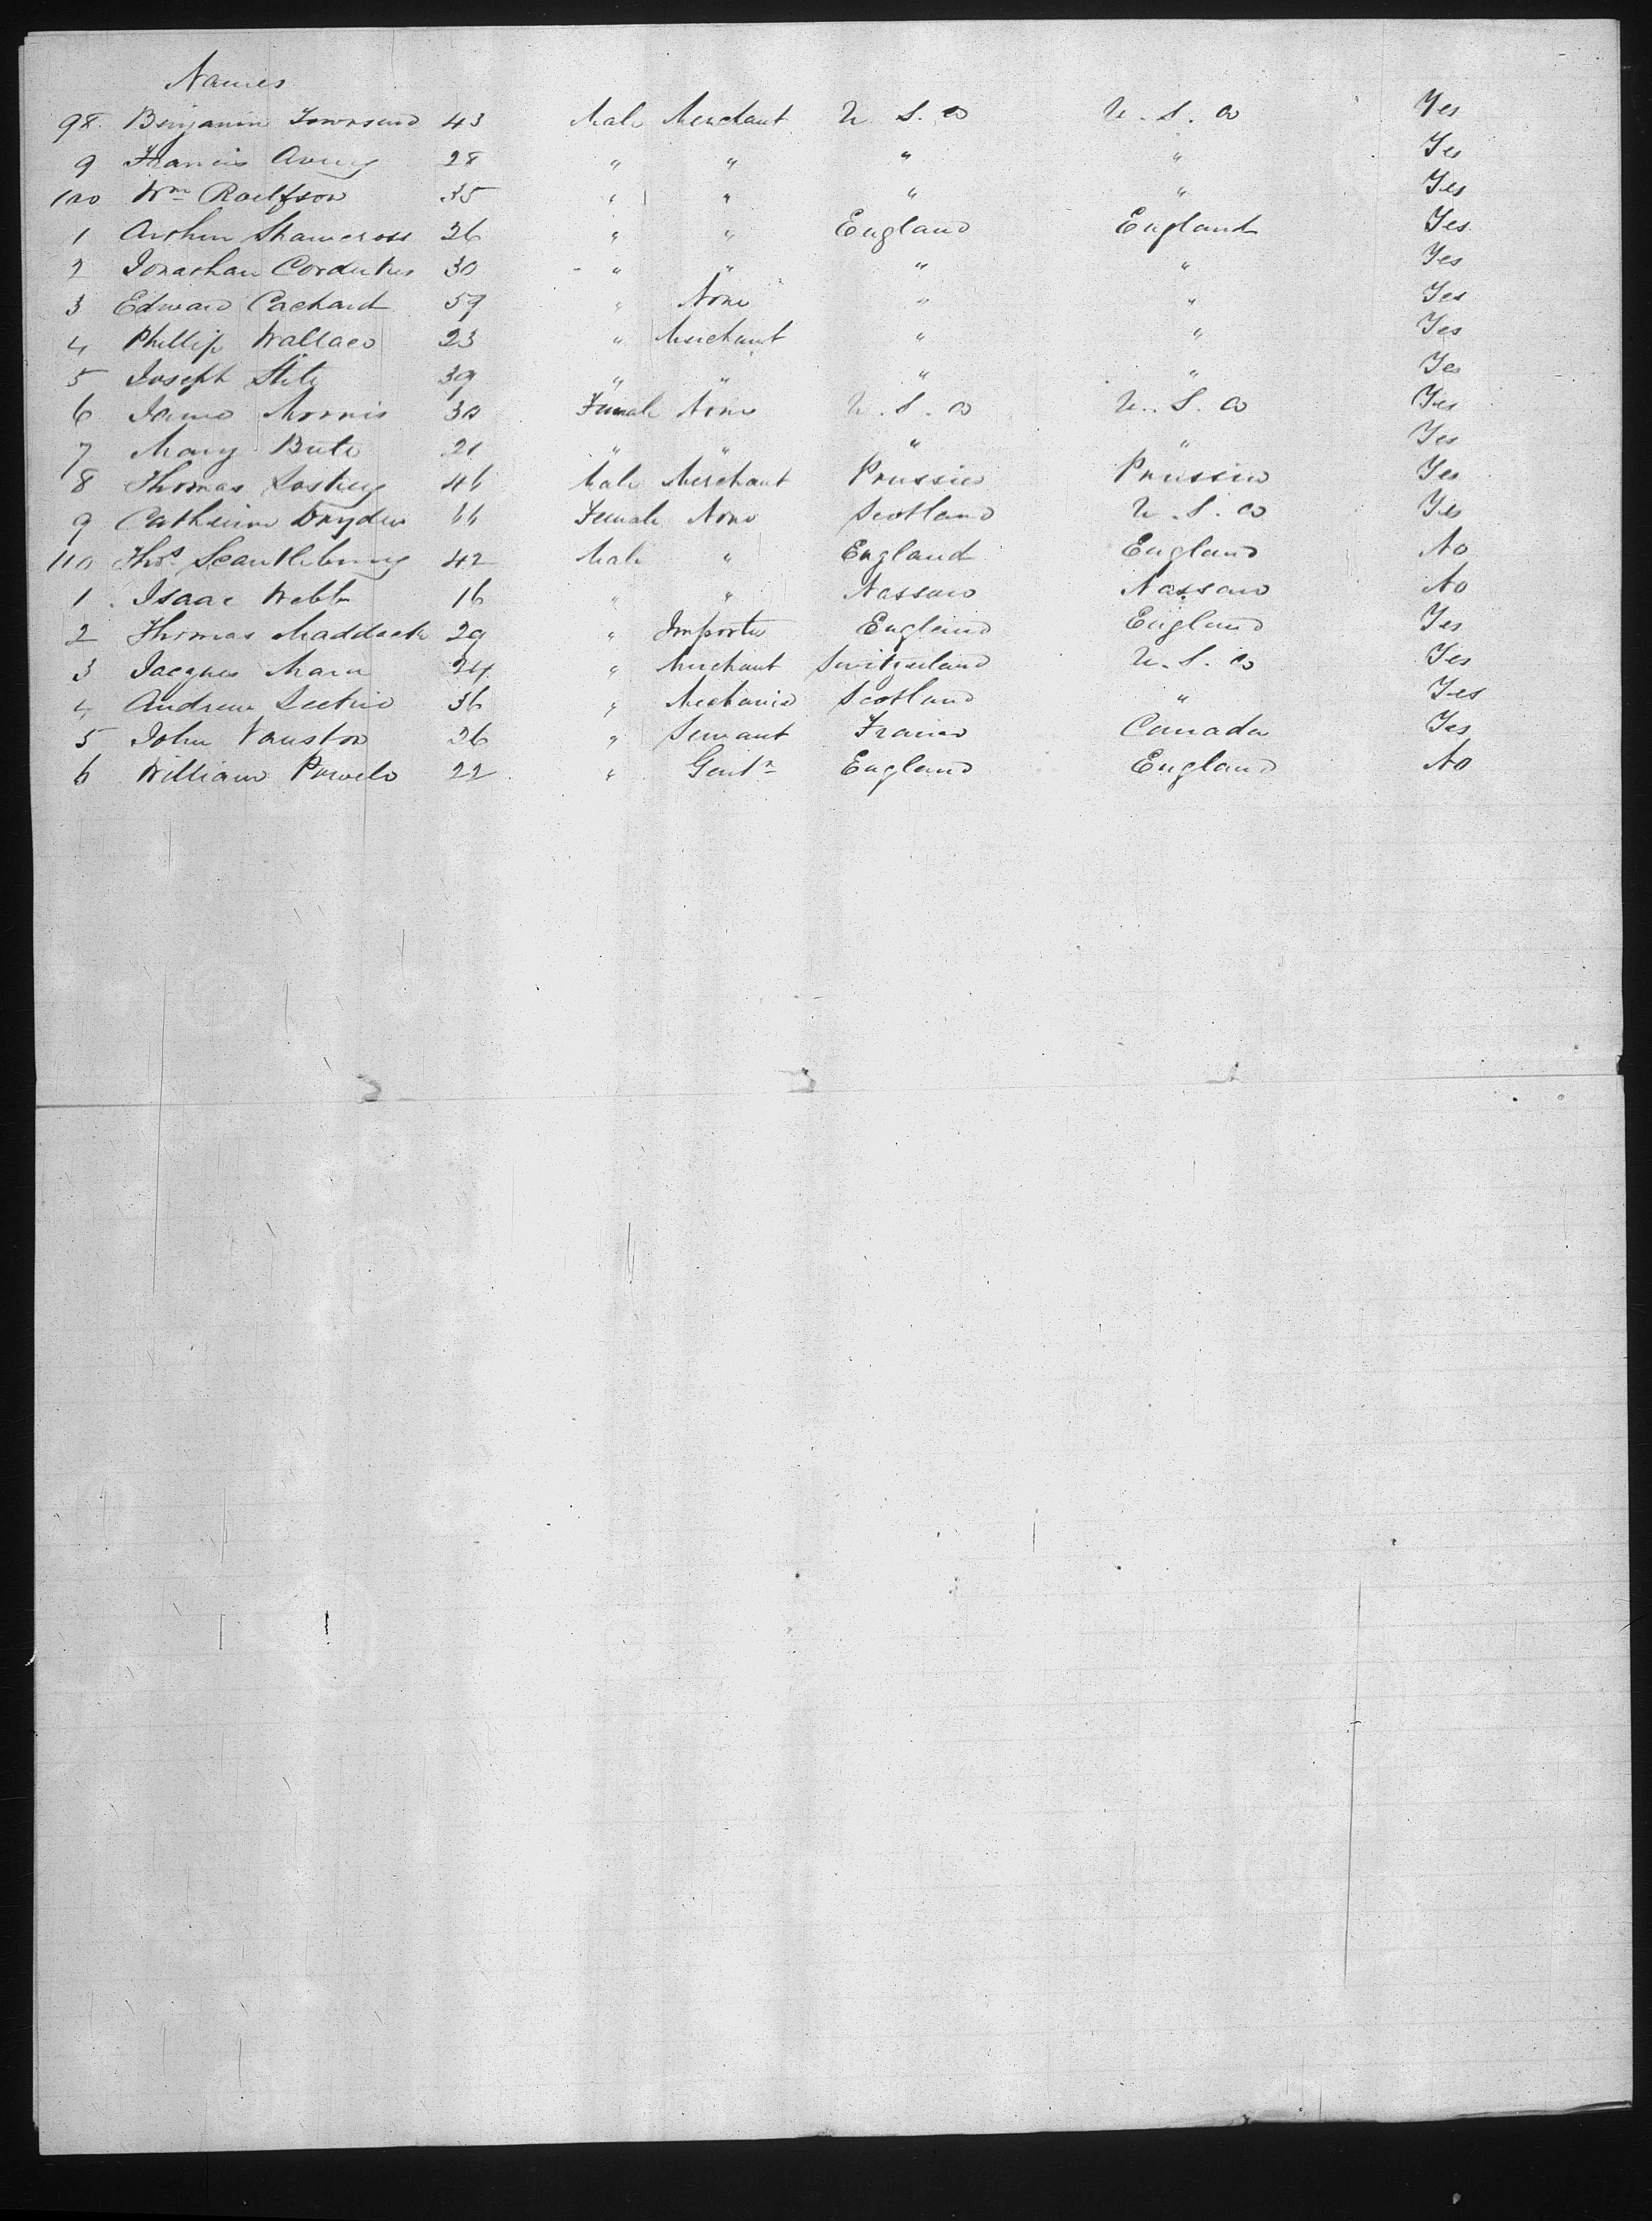 Names
98. Benjamin Townsend 43 Male Merchant U. S. a U. S. a Yes
9 Francis Avery 28 " " " " Yes
100 Wm Roelfson 35 " " " " Yes
1 Arthur Shawcross 26 " " England England Yes
2 Jonathan 30 " " " " Yes
3 Edward 59 " None " " Yes
4 Phillip Wallace 23 " Merchant " " Yes
5 Joseph 39 " " " " Yes
6 Morris 30 Female None U. S. a U. S. a Yes
7 Mary 21 " " " " Yes
8 Thomas 46 Male Merchant Prussia Prussia Yes
9 Catherine Dryden 66 Female None Scotland U. S. a Yes
110 Thos. Scantlebury 42 Male " England England No
1 Isaac Webb 16 " " Nassau Nassau No
2 Thomas Maddock 29 " Importer England England Yes
3 Jacques 24 " Merchant Switzerland U. S. a Yes
4 Andrew 36 " Mechanic Scotland " Yes
5 John 26 " Servant France Canada Yes
6 William 22 " Gentn England England No